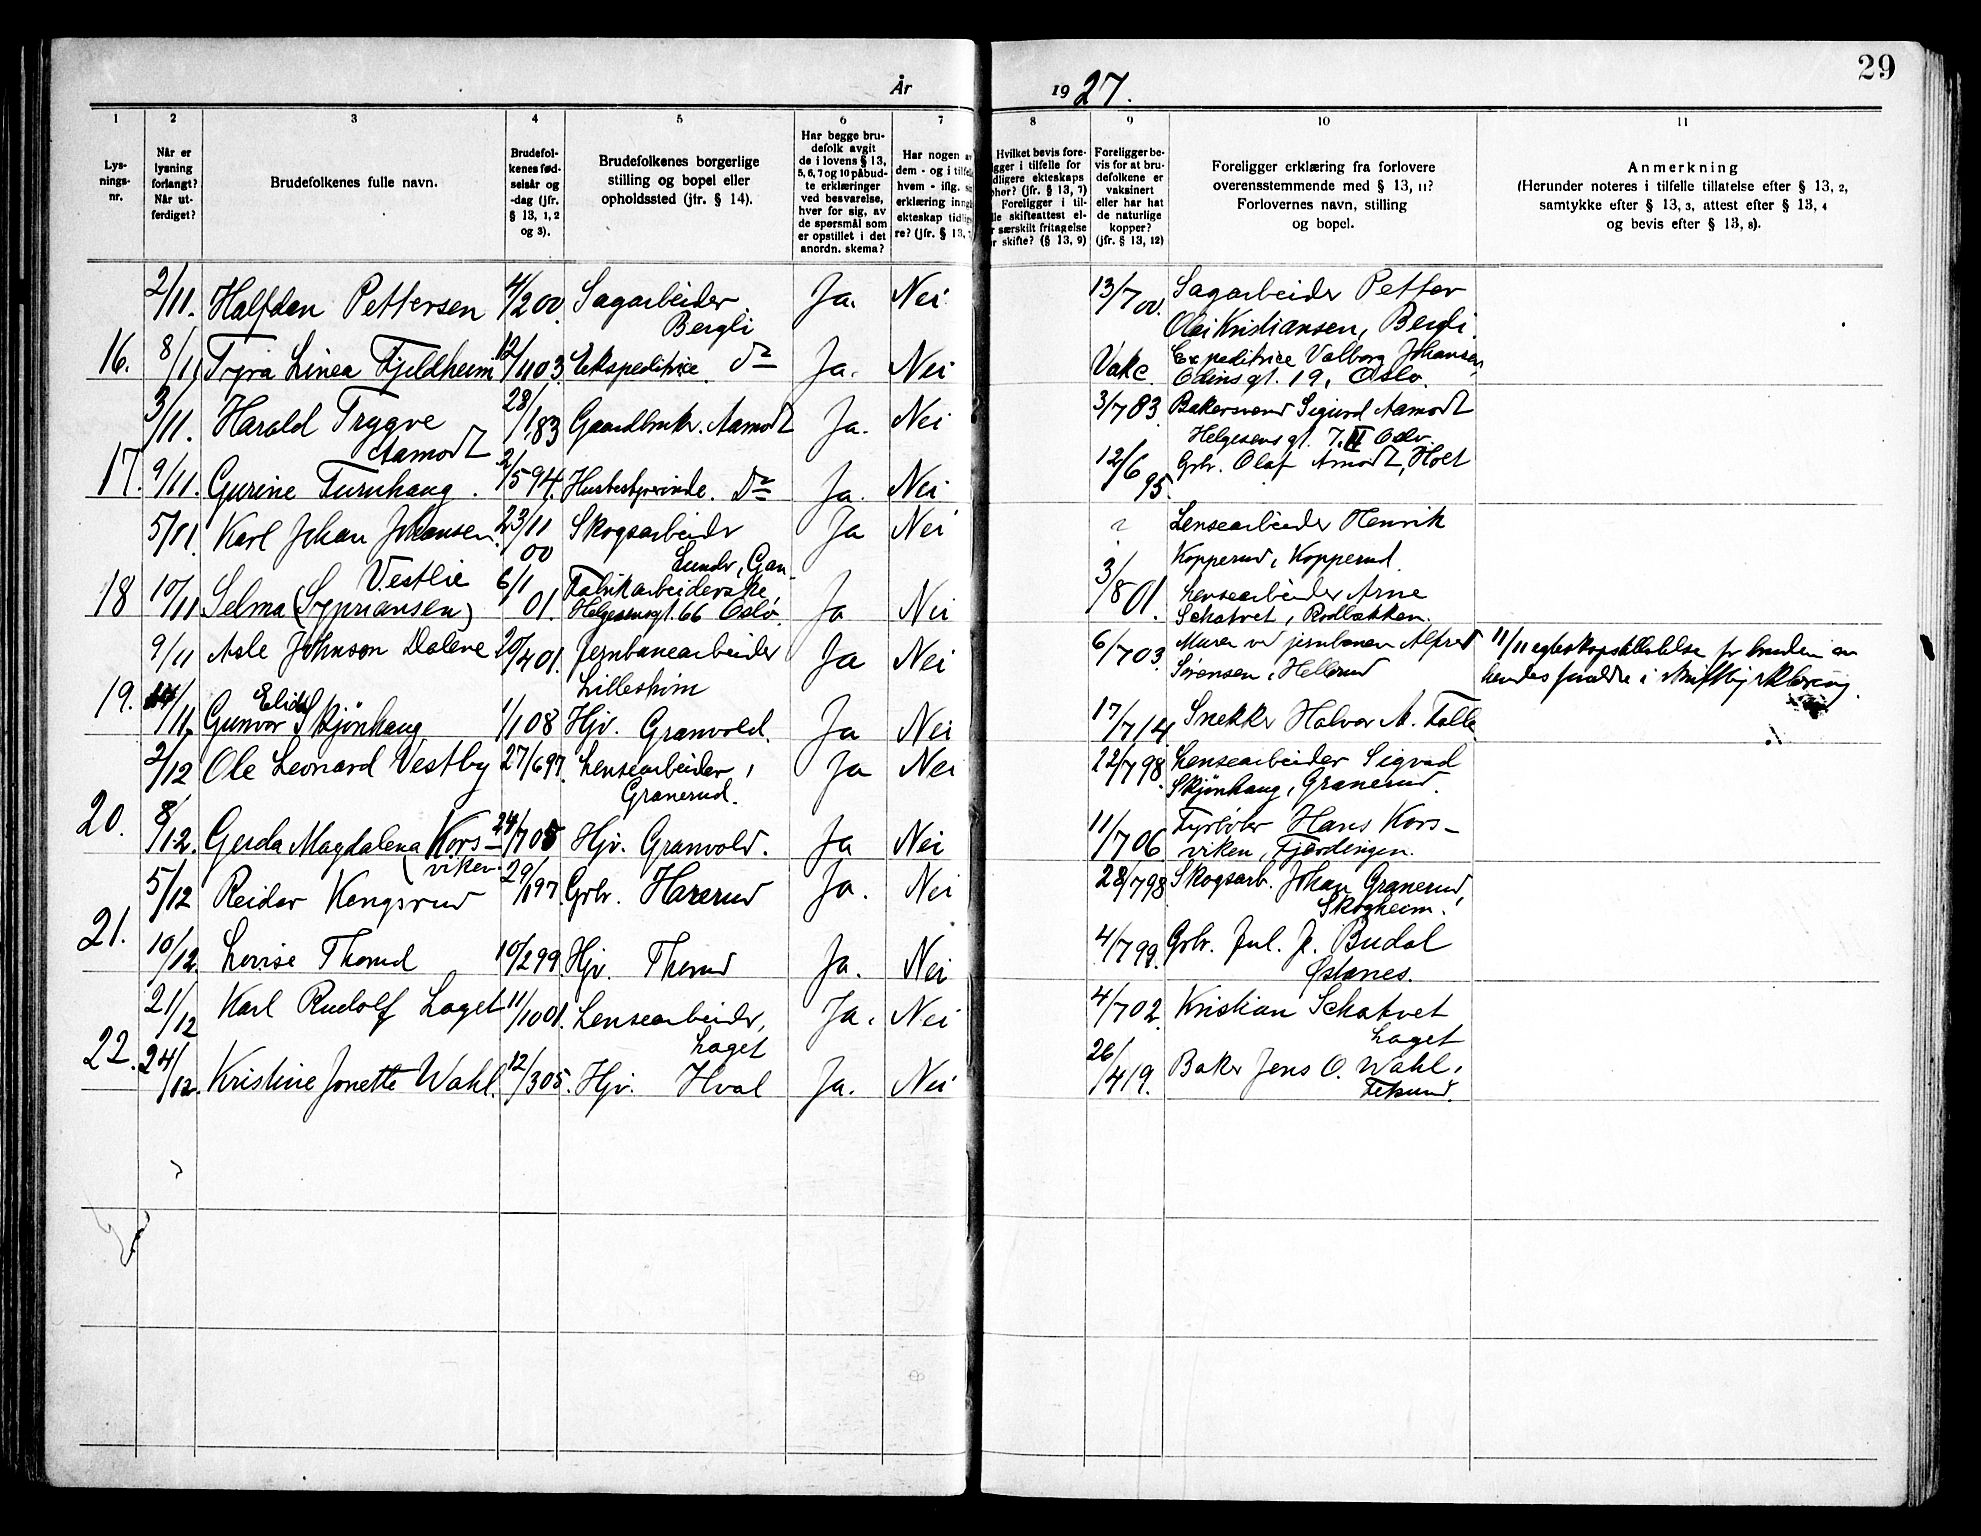 29
År 1927.
1 2 3 4 5 6 7 8 9 10 11
Lys-
nings-
nr.
Når er
lysning
forlangt?
Når ut-
ferdiget?
Brudefolkenes fulle navn.
Brudefol-
kenes fød-
selsår og
-dag (jfr.
§ 13, 1, 2
og 3).
Brudefolkenes borgerlige
stilling og bopel eller
opholdssted (jfr. § 14).
Har begge bru-
defolk avgit
de i lovens § 13,
5, 6, 7 og 10 påbud-
te erklæringer
ved besvarelse,
hver for sig, av
de spørsmål som
er opstillet i det
anordn. skema?
Har nogen av
dem - og i tilfelle
hvem - iflg.
erklæring inngå
ekteskap tidlige
re? (jfr. § 13,
Hvilket bevis fore-
ligger i tilfelle for
tidligere ekteskaps
ophør? (jfr. § 13, 7)
Foreligger i til-
felle skifteattest el-
særskilt fritagelse
skifte? (§ 13, 9)
Foreligger be-
vis for at bru-
defolkene er
vaksinert
eller har hat
de naturlige
kopper?
(jfr. § 13, 12)
Foreligger erklæring fra forlovere
overensstemmende med § 13, 11?
Forlovernes navn, stilling
og bopel.
Anmerkning
(Herunder noteres i tilfelle tillatelse efter § 13, 2,
samtykke efter § 13, 3, attest efter § 13, 4
og bevis efter § 13, 8).
2/11. Halfdan Pettersen 4/2 00. Sagarbeider Ja. Nei 13/7 00. Sagarbeider Petter
Bergli Olai Kristiansen, Bergli
16. 8/11 Tyra Linea Fjeldheim 12/11 03. Ekspeditrice Do Ja. Nei Vakc. Expeditrice Valborg Johansen
Odinsgt. 19, Oslo.
3/11. Harald Trygve 28/1 83 Gaardbruker. Aamodt Ja. Nei 3/7 83 Bakersvend Sigurd Aamodt
Aamodt Helgesensgt. 7. II Oslo.
17. 9/11. Gurine Furuhaug. 2/5 94. Husbestyrerinde. Do Ja. Nei 12/6 95. Grbr. Olaf Amodt, Holt
5/11. Karl Johan Johansen 23/11 00 Skogsarbeider Ja Nei ? Lensearbeider Henrik
Vestlie Kopperud, Kopperud.
18 10/11 Selma (Sypriansen) 6/1 01. Fabrikarbeiderske Ja Nei 3/8 01. Lensearbeider Arne
Helgesensgt. 66 Oslo. Schatvet,
9/11 Asle Johnson Dalene 20/4 01. Jernbanearbeider Ja Nei 6/7 03. Murer ved jernbanen Alfred 11/11 egteskapstillatelse for bruden av
Lillestrøm Sørensen, Hellerud
19. /11. Gunvor Elida Skjönhaug 1/1 08 Hjv. Granvold. Ja Nei 17/7 14. Snekker Halvor M. Falla
2/12 Ole Leonard Vestby 27/6 97. Lensearbeider, Ja Nei 22/7 98. Lensearbeider Sigvad
Granerud. Skjönhaug, Granerud.
20. 8/12. Gerda Magdalena Kors- 24/7 05 Hjv. Granvold. Ja Nei 11/7 06 Fyrbøter Hans Kors-
viken. viken, Fjerdingen.
5/12 Reidar Kengsrud 29/1 97 Grbr. Harerud Ja. Nei 28/7 98 Skogsarb. Johan Granerud,
Skogheim.
21. 10/12. Lovise Thorud 10/2 99. Hjv. Thorud Ja. Nei 4/7 99. Grbr. Jul. J. Budal
Østanes.
21/12 Karl Rudolf Laget 11/10 01. Lensearbeider, Ja. Nei 4/7 02. Kristian Schatvet
Laget Laget
22. 24/12. Kristine Jonette Wahl. 12/3 05. Hjv. Hval Ja. Nei 26/4 19. Baker Jens O. Wahl,
Fetsund.